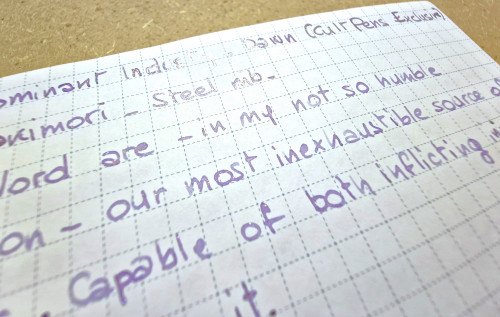 ominant Indus Dawn (Cult Pens Exclusive)
okimori - Steel nib.
Word are - in my not so humble
on - our most inexhaustible source o
. Capable of both inflicting
it.